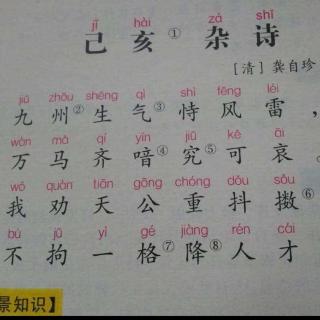 jǐ hài zá shī
己亥①杂诗
[清]龚自珍
jiǔ zhōu shēng qì shì fēng léi
九州②生气③恃风雷，
wàn mǎ qí yīn jiū kě āi
万马齐喑④究⑤可哀。
wǒ quàn tiān gōng chóng dǒu sǒu
我劝天公重抖擞⑥
bù jū yì gé jiàng rén cái
不拘一格⑦降⑧人才
景知识】